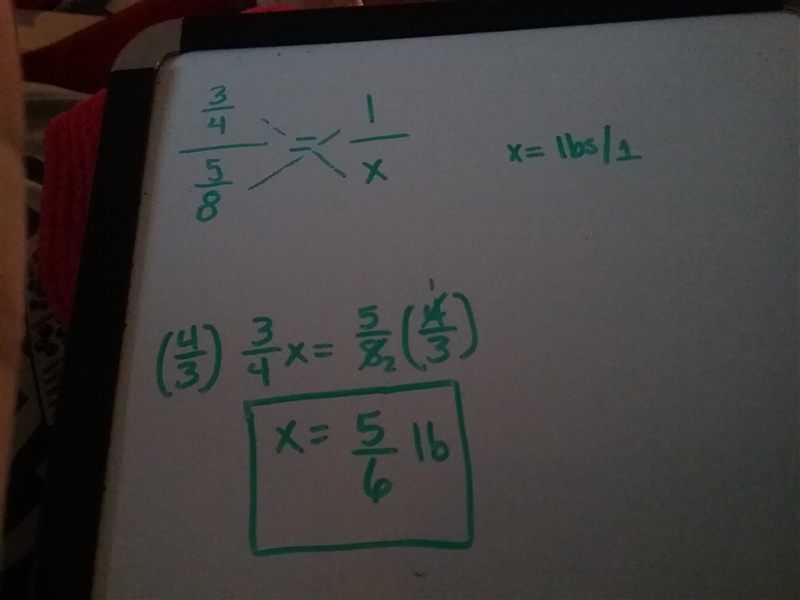 3/4 / 5/8 = 1/x
x = lbs/1
(4/3) 3/4 x = 5/8 2 (4/3) 1
x = 5/6 lb